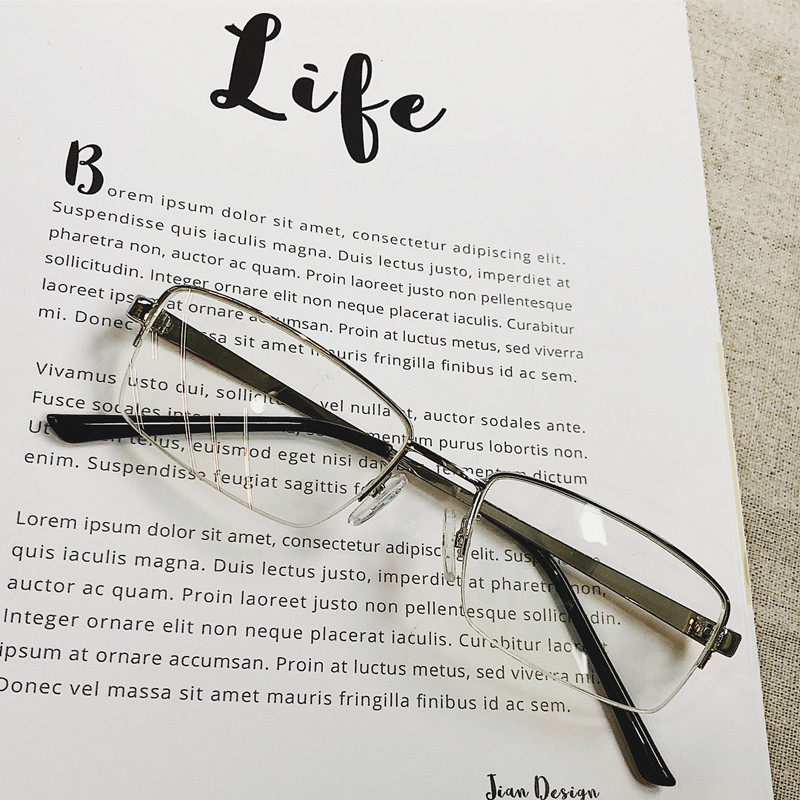 Life
Borem ipsum dolor sit amet, consectetur adipiscing elit.
Suspendisse quis iaculis magna. Duis lectus justo, imperdiet at
pharetra non, auctor ac quam. Proin laoreet justo non pellentesque
sollicitudin. Integer ornare elit non neque placerat iaculis. Curabitur
laoreet ipsum at ornare accumsan. Proin at luctus metus, sed viverra
mi. Donec massa sit amet mauris fringilla finibus id ac sem.
Vivamus justo dui, sollicitudin vel nulla et, auctor sodales ante.
Fusce sodales fermentum purus lobortis non.
Ut tellus, euismod eget nisi fermentum dictum
enim. Suspendisse feugiat sagittis
Lorem ipsum dolor sit amet, consectetur adipiscing elit.
quis iaculis magna. Duis lectus justo, imperdiet at pharetra non,
auctor ac quam. Proin laoreet justo non pellentesque sollicitudin.
Integer ornare elit non neque placerat iaculis. Curabitur laoreet
ipsum at ornare accumsan. Proin at luctus metus, sed viverra mi.
Donec vel massa sit amet mauris fringilla finibus id ac sem.
Jian Design